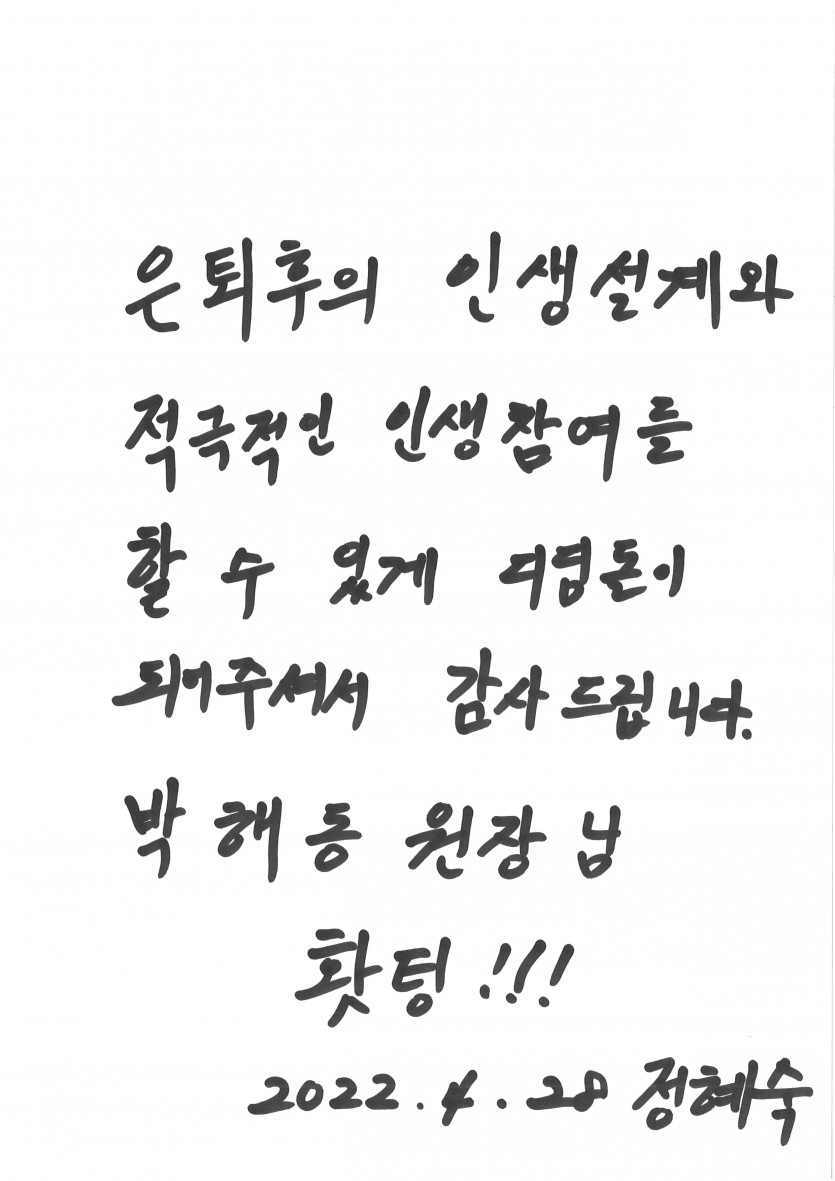 은퇴후의 인생설계와
적극적인 인생참여를
할 수 있게 디딤돌이
되어주셔서 감사드립니다.
박해동 원장님
홧팅!!!
2022.4.28 정혜숙